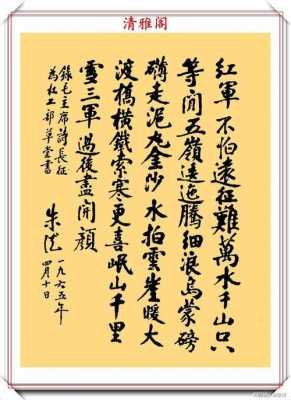 清雅阁
紅軍不怕遠征難萬水千山只
等閒五嶺逶迤騰細浪烏蒙磅
礴走泥丸金沙水拍雲崖暖大
渡橋橫鐵索寒更喜岷山千里
雪三軍過後盡開顏
錄毛主席詩長征
為杜工部草堂書
朱德
一九六五年
四月十日